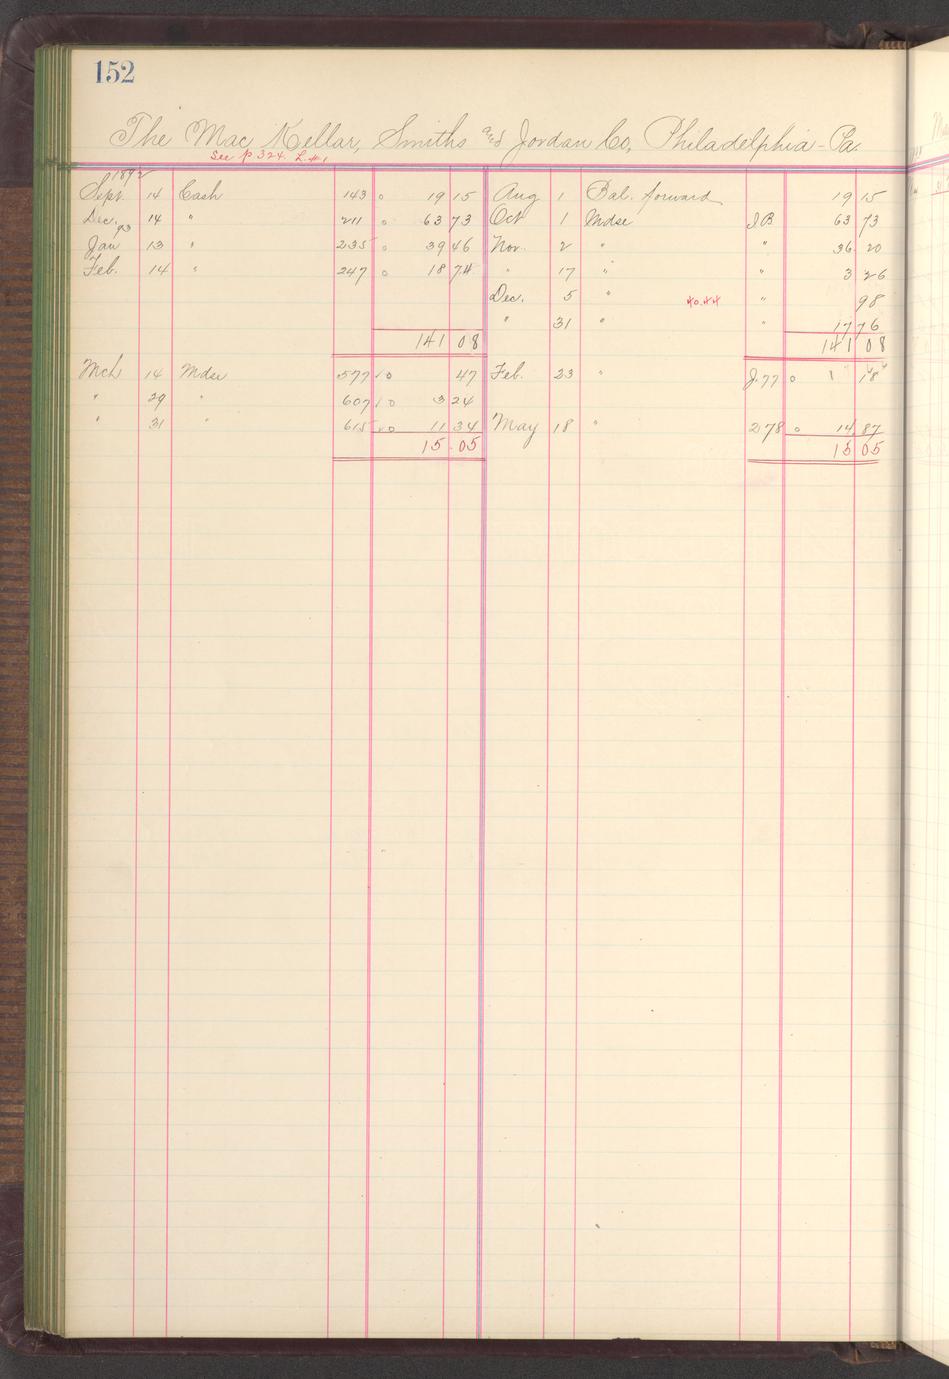 152
The Mac Kellar, Smiths and Jordan Co, Philadelphia - Pa.
See p 324. L.#1
1892
Sept. 14 Cash 143 0 19 15 Aug 1 Bal. forward 19 15
Dec. 14 " 211 0 63 73 Oct 1 Mdse J.B 63 73
93
Jan 13 " 235 0 39 46 Nov. 2 " " 36 20
Feb. 14 " 247 0 18 74 " 17 " " 3 26
Dec. 5 " 40.44 " 98
" 31 " " 17 76
141 08 141 08
Mch 14 Mdse 577 10 47 Feb. 23 " J.77 0 18
" 29 " 607 10 3 24
" 31 " 615 10 11 34 May 18 " 278 0 14 87
15 05 15 05